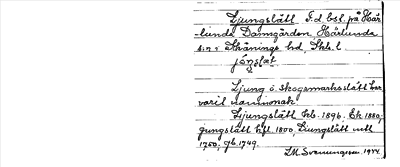 Ljungslätt F.d bsl. på Här-
lunda Domgården, Härlunda
s:n: Skånings hd, Skbs. l.
jóŋslæt
Ljung o. skogsmarksslätt har
varit namnonak.
Ljungslätt hb. 1896. Ek 1880
jungslätt hfl. 1800, Liungslätt mtl
1750. gb 1749.
LM Svenungson. 1944.